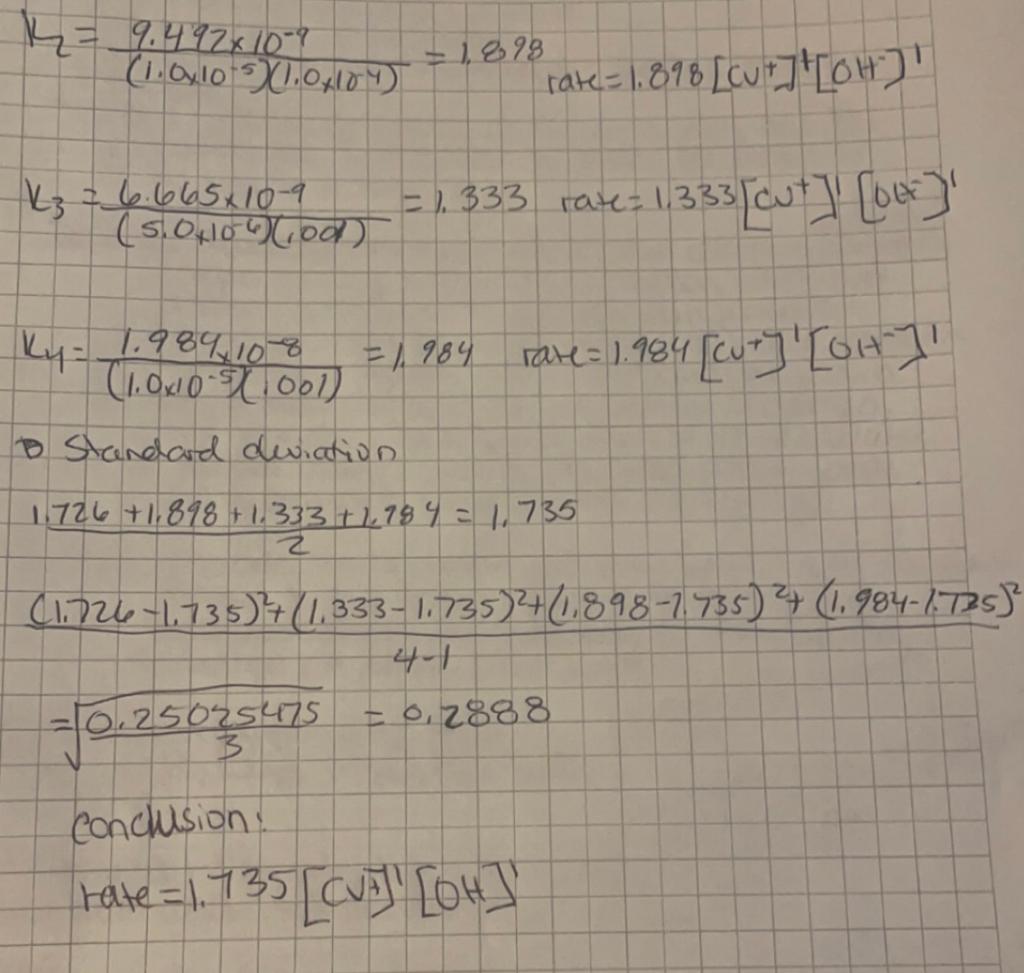 K₂ = 9.492x10⁻⁹ / (1.0x10⁻⁵)(1.0x10⁻⁴) = 1.898 rate = 1.898 [CV+]¹[OH⁻]¹
K₃ = 6.665x10⁻⁹ / (5.0x10⁻⁶)(.001) = 1.333 rate = 1.333 [CV+]¹ [OH⁻]¹
K4 = 1.984x10⁻⁸ / (1.0x10⁻⁵)(.001) = 1.984 rate = 1.984 [CV+]¹ [OH⁻]¹
Standard deviation
1.726 + 1.898 + 1.333 + 1.984 / 2 = 1.735
(1.726 - 1.735)² + (1.333 - 1.735)² + (1.898 - 1.735)² + (1.984 - 1.735)² / 4-1
= √0.25025475 / 3 = 0.2888
Conclusion:
rate = 1.735 [CV+]¹ [OH]¹